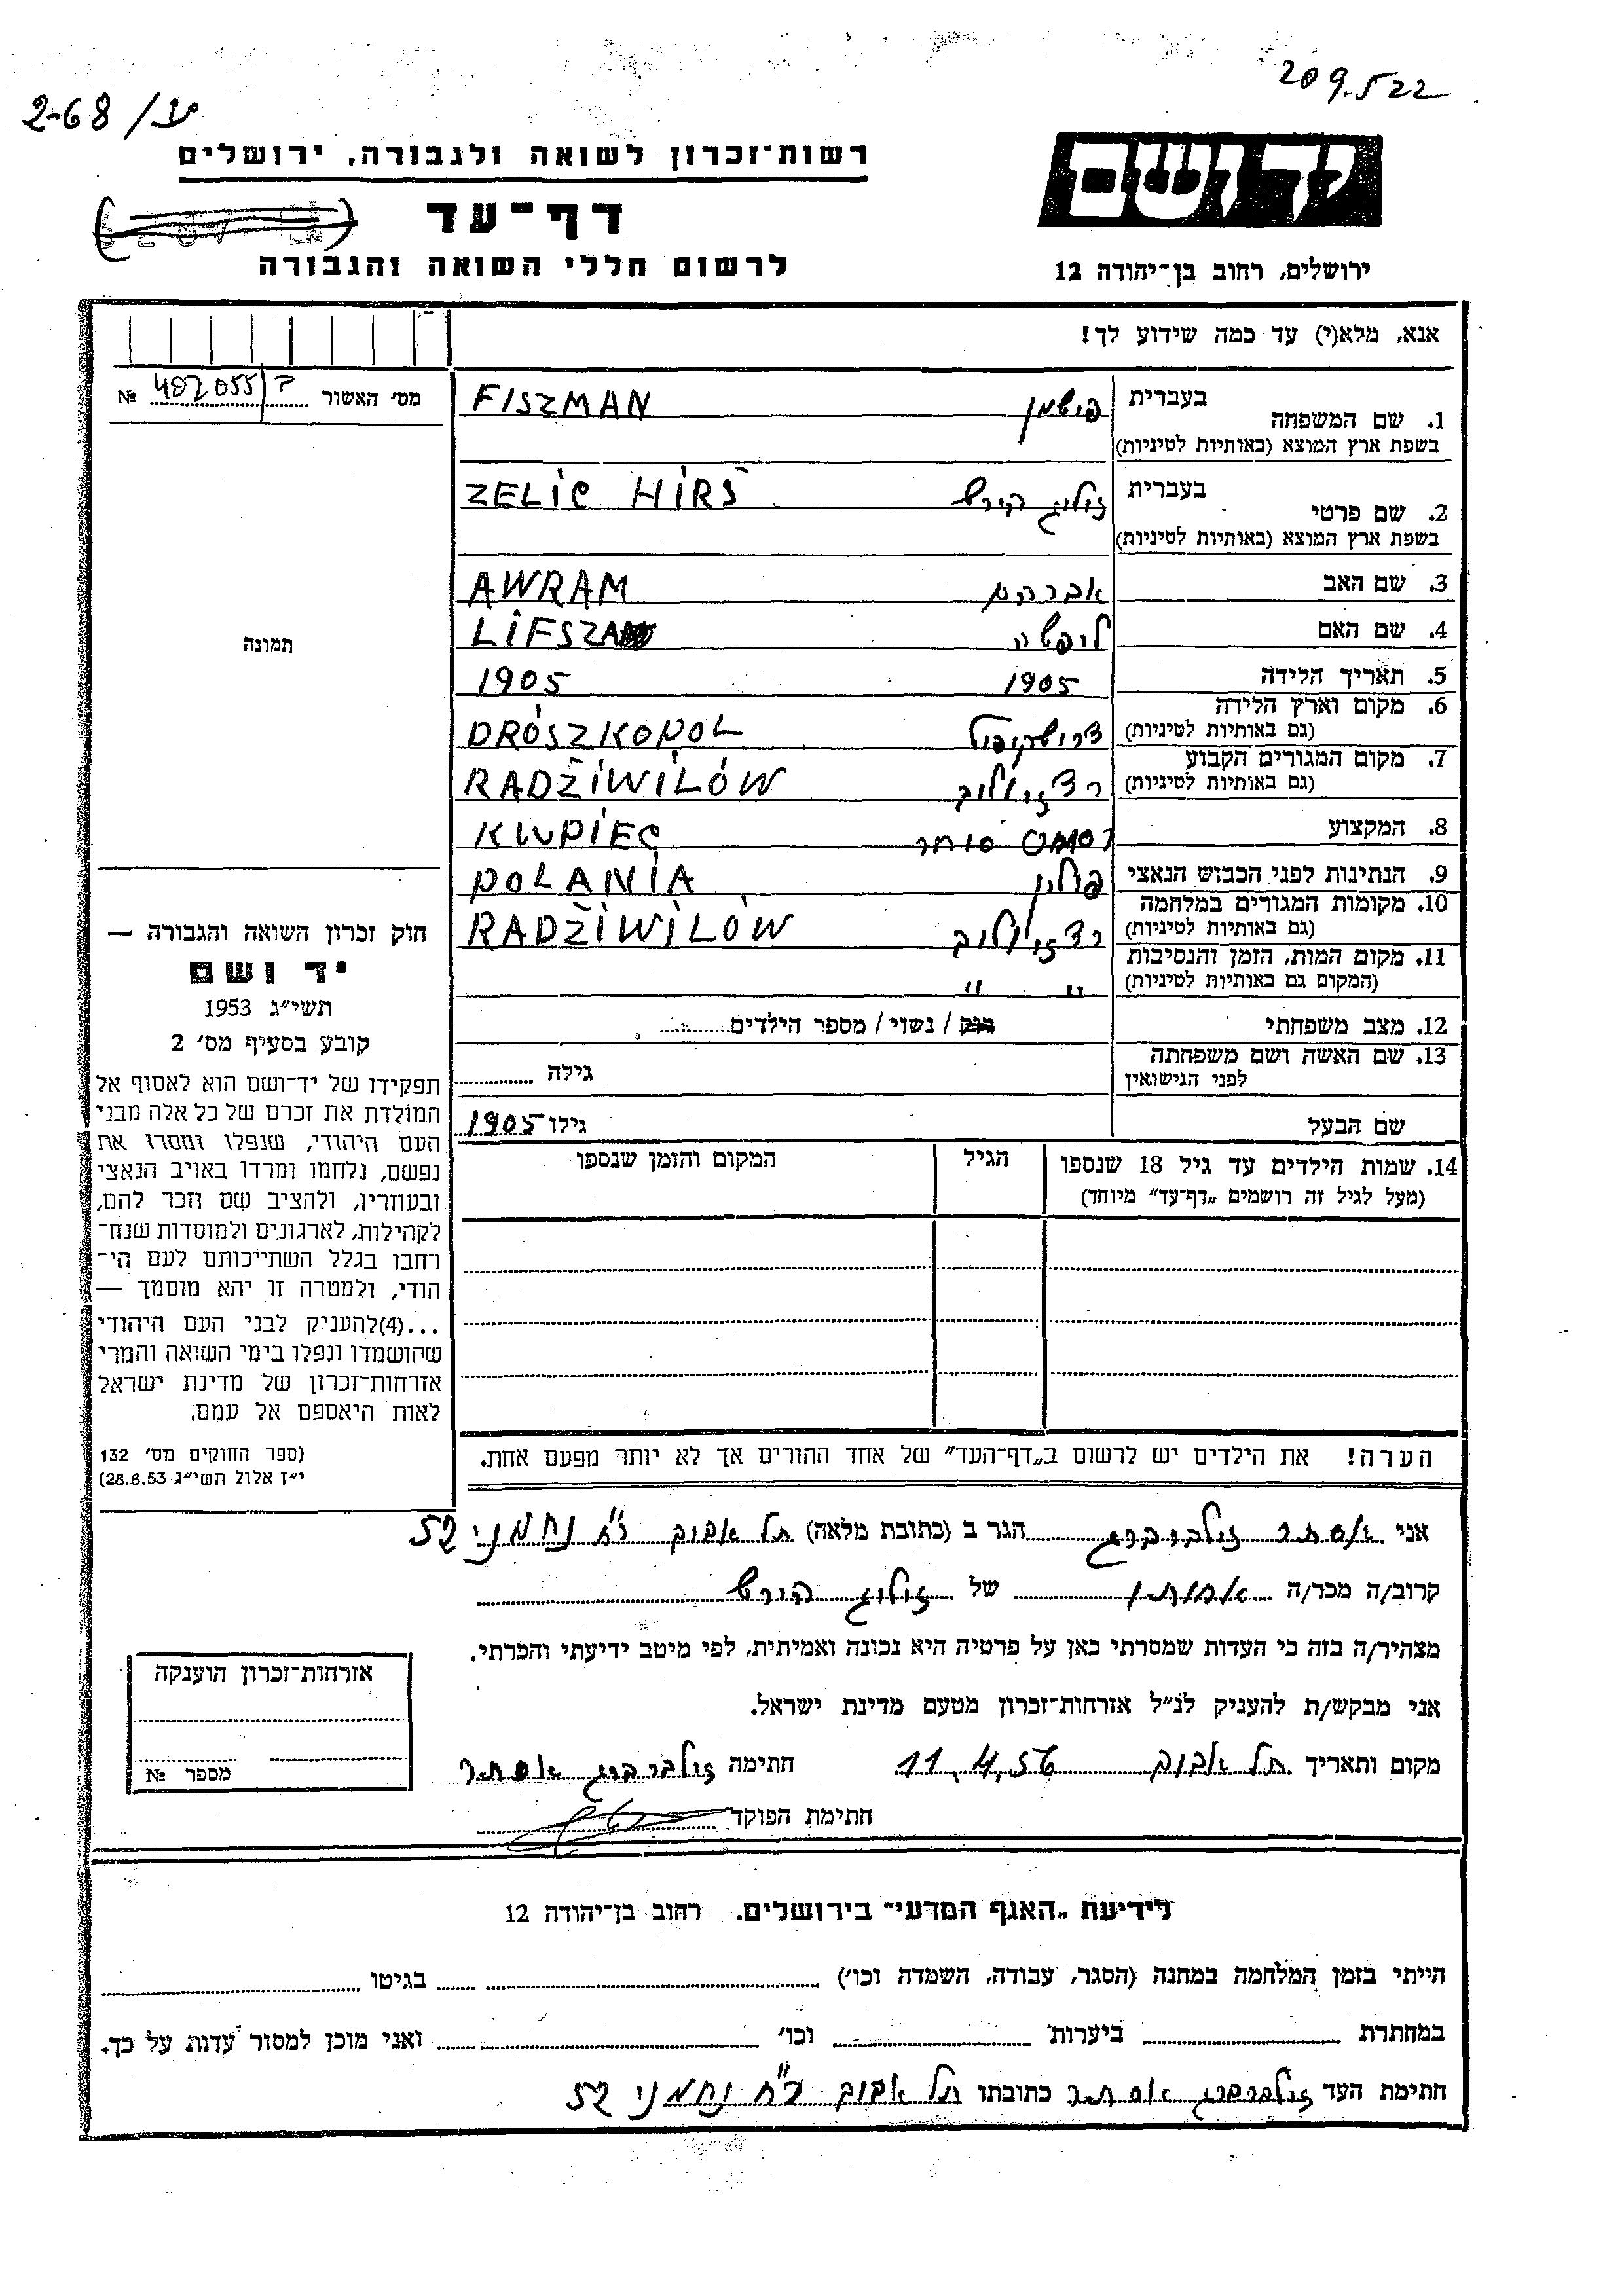 209.522
2-68/ע
רשות־זכרון לשואה ולגבורה, ירושלים
יד ושם
דף־עד
לרשום חללי השואה והגבורה
ירושלים, רחוב בן־יהודה 12
אנא, מלא(י) עד כמה שידוע לך!
מס׳ האשור 402055/ № 
1. שם המשפחה בעברית פישמן FISZMAN
בשפת ארץ המוצא (באותיות לטיניות)
2. שם פרטי בעברית זליג הירש ZELIG HIRŠ
בשפת ארץ המוצא (באותיות לטיניות)
3. שם האב אברהם AWRAM
4. שם האם ליפשה LIFSZA
5. תאריך הלידה 1905 1905
6. מקום וארץ הלידה (גם באותיות לטיניות) דרושקופול DRÓSZKOPOL
7. מקום המגורים הקבוע (גם באותיות לטיניות) רדזיוילוב RADŽIWILÓW
8. המקצוע סוחר KUPIEC
9. הנתינות לפני הכבוש הנאצי פולין POLANIA
10. מקומות המגורים במלחמה (גם באותיות לטיניות) רדזיוילוב RADŽIWILÓW
11. מקום המות, הזמן והנסיבות (המקום גם באותיות לטיניות) " "
12. מצב משפחתי רוק / נשוי / מספר הילדים
13. שם האשה ושם משפחתה לפני הנישואין גילה
שם הבעל גילו 1905
14. שמות הילדים עד גיל 18 שנספו הגיל המקום והזמן שנספו
(מעל לגיל זה רושמים „דף־עד״ מיוחד)
תמונה
חוק זכרון השואה והגבורה —
יד ושם
תשי״ג 1953
קובע בסעיף מס׳ 2
תפקידו של יד־ושם הוא לאסוף אל
המולדת את זכרם של כל אלה מבני
העם היהודי, שנפלו ומסרו את
נפשם, נלחמו ומרדו באויב הנאצי
ובעוזריו, ולהציב שם וזכר להם,
לקהילות, לארגונים ולמוסדות שנח־
רחבו בגלל השתייכותם לעם הי־
הודי, ולמטרה זו יהא מוסמך —
...(4)להעניק לבני העם היהודי
שהושמדו ונפלו בימי השואה והמרי
אזרחות־זכרון של מדינת ישראל
לאות היאספם אל עמם.
(ספר החוקים מס׳ 132
י״ז אלול תשי״ג 28.8.53)
הערה! את הילדים יש לרשום ב„דף־העד״ של אחד ההורים אך לא יותר מפעם אחת.
אני אסתר זילברברג הגר ב (כתובת מלאה) תל אביב רח׳ נחמני 52
קרוב/ה מכר/ה אחותו של זליג הירש
מצהיר/ה בזה כי העדות שמסרתי כאן על פרטיה היא נכונה ואמיתית, לפי מיטב ידיעתי והכרתי.
אני מבקש/ת להעניק לנ״ל אזרחות־זכרון מטעם מדינת ישראל.
מקום ותאריך תל אביב 11.4.56 חתימה זילברברג אסתר
חתימת הפוקד
אזרחות־זכרון הוענקה
מספר №
לידיעת „האגף המדעי״ בירושלים. רחוב בן־יהודה 12
הייתי בזמן המלחמה במחנה (הסגר, עבודה, השמדה וכו׳) בגיטו
במחתרת ביערות וכו׳ ואני מוכן למסור עדות על כך.
חתימת העד זילברברג אסתר כתובתו תל אביב רח׳ נחמני 52